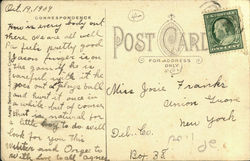 Oct. 19, 1909
CORRESPONDENCE
How is every body out
there we are all well
Pa feels pretty good
Jason finger is on
the gain if he is
careful with it he
goes out a plays ball
and hurt it once in
a while but of course
that is natural for
a little boy to do well
look for you this
winter and
with love to all Agnes
POST CARD
FOR ADDRESS
ONLY
Miss Josie Franks
Union Grove
New York
Del. Co.
Box 38